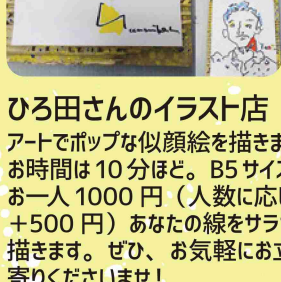 ひろ田さんのイラスト店
アートでポップな似顔絵を描きま
お時間は10分ほど。B5サイズ
お一人1000 円（人数に応じ
+500 円）あなたの線をサラ
描きます。ぜひ、お気軽にお立
寄りくださいませ！